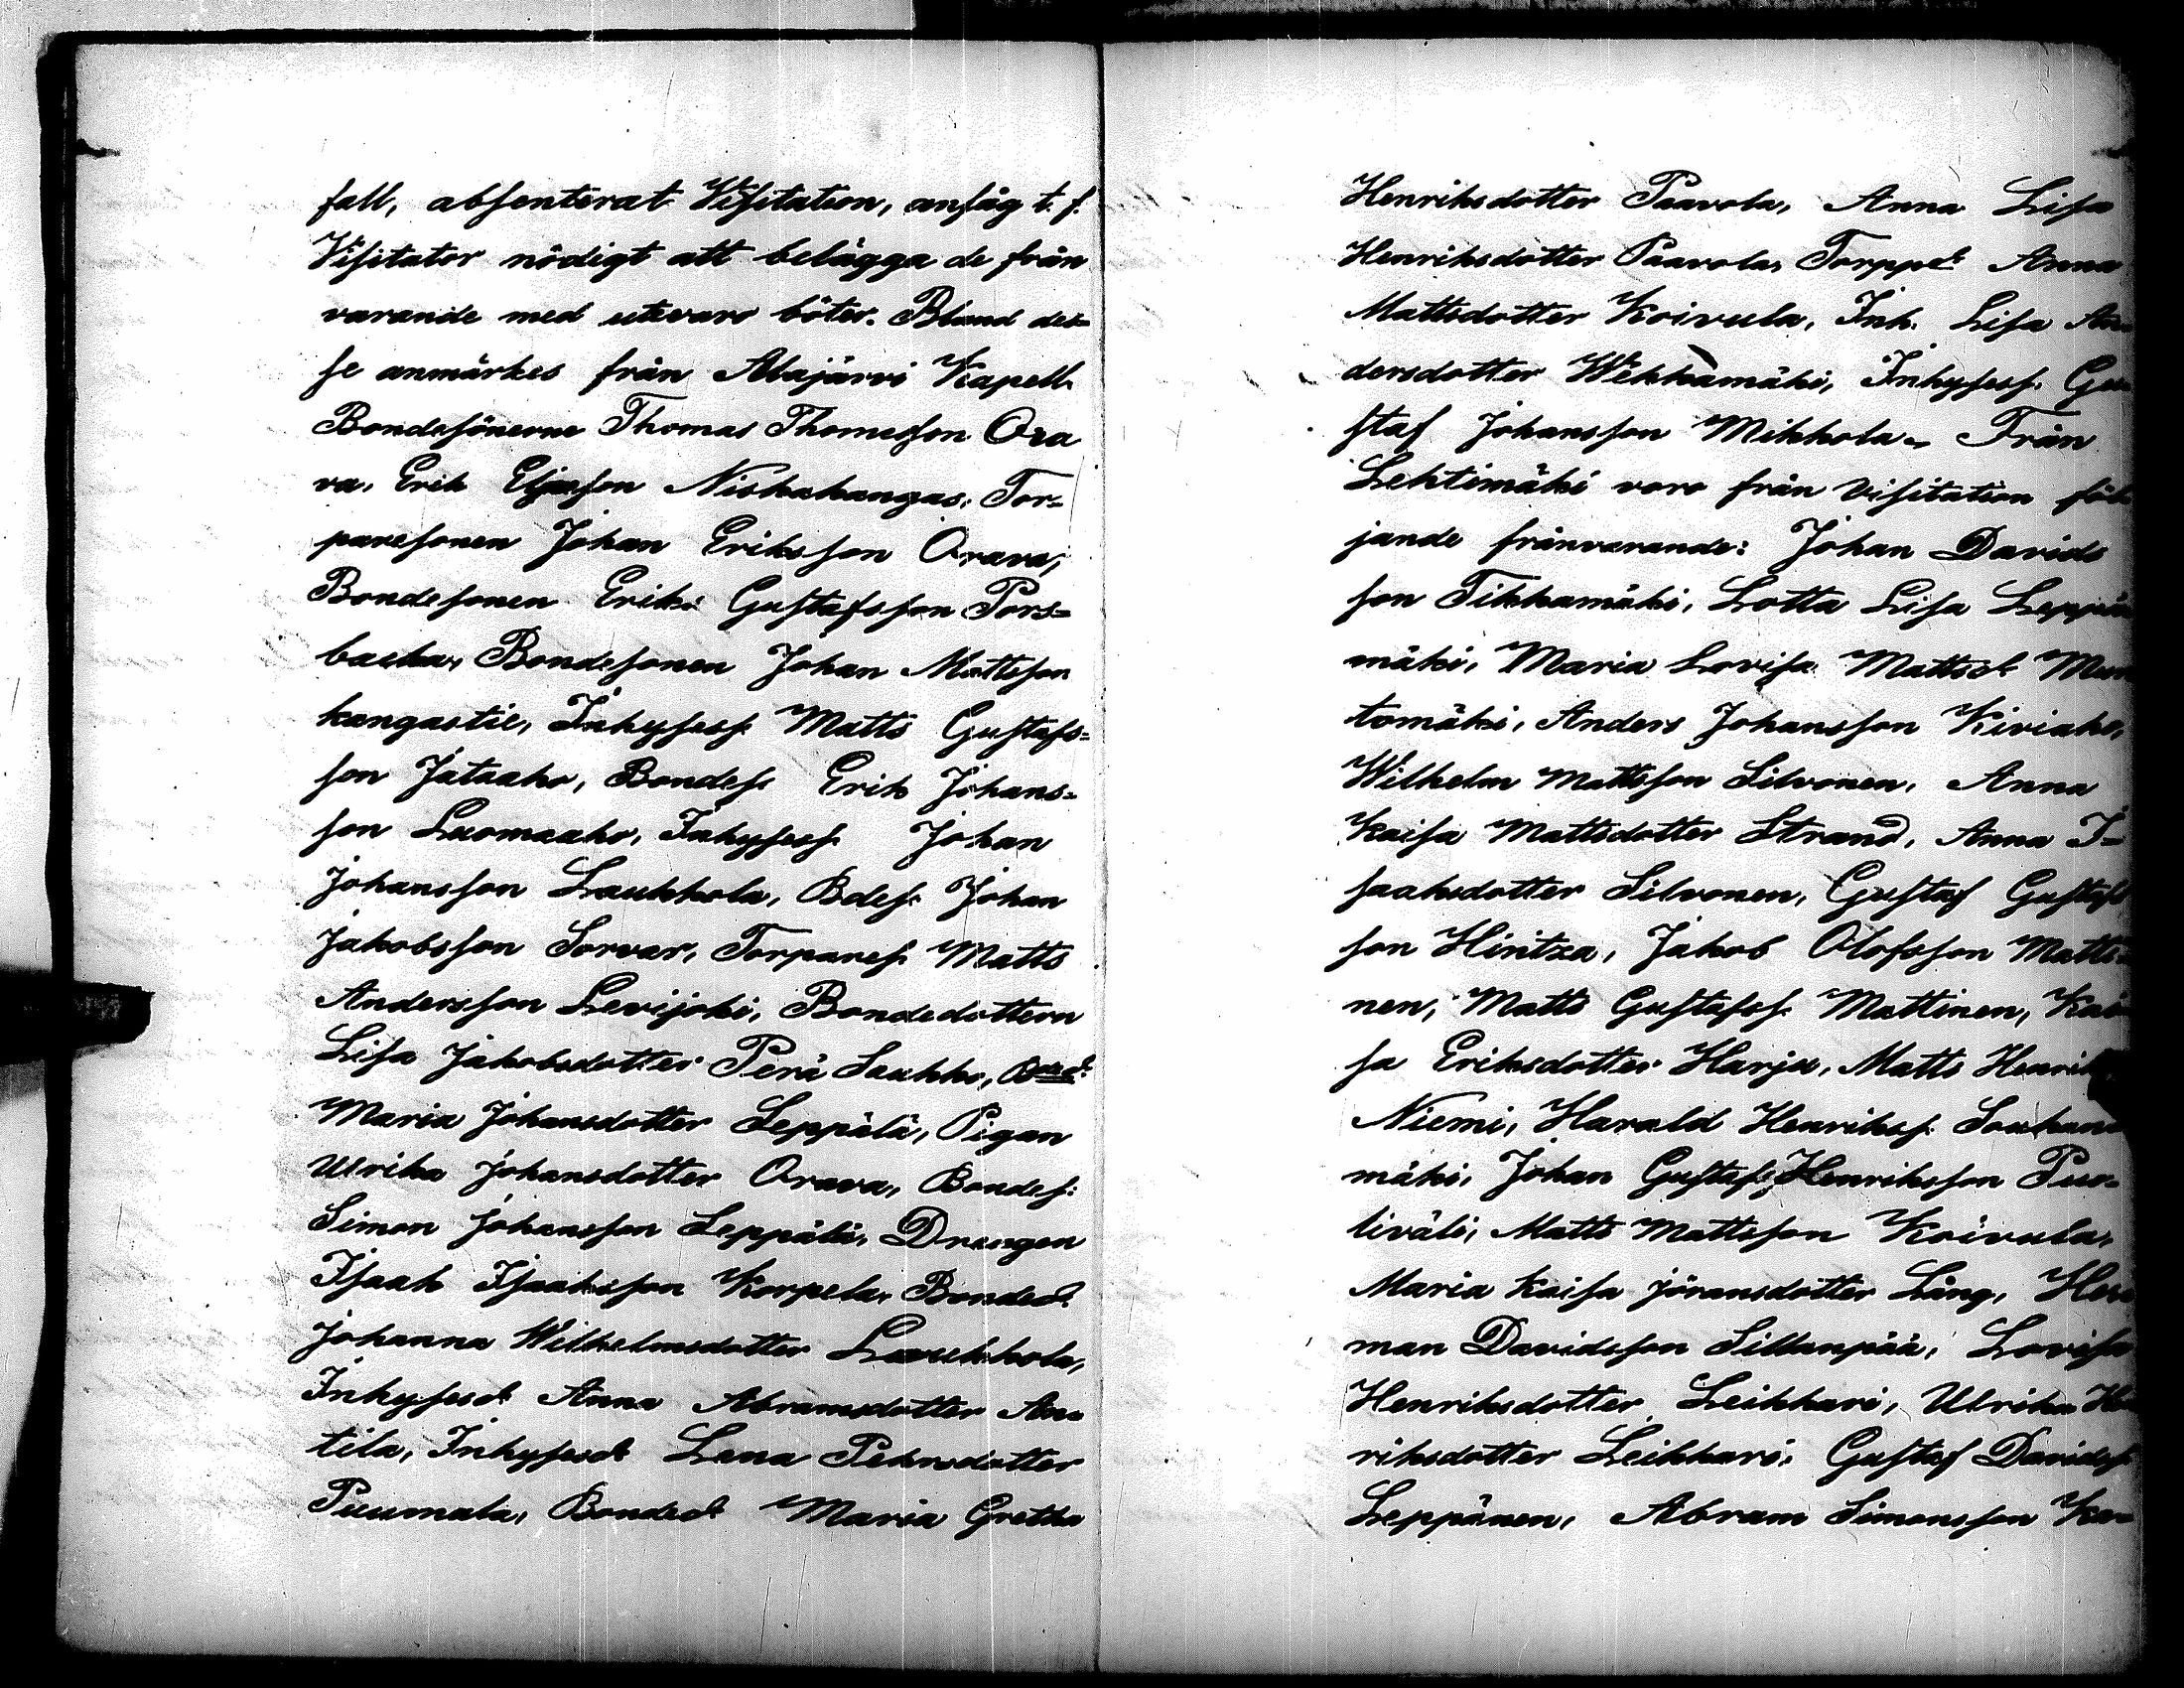 fall, absenterat Visitation, ansåg t. f.
Visitator nödigt att belägga de från
varande med utevaro böter. Bland des=
se anmärkes från Alajärvi Kapell
Bondesönerne Thomas Thomasson Ora
va, Erik Eljasson Niskakangas, Tor=
paresonen Johan Eriksson Orava,
Bondesonen Erik Gustafsson Pors=
backa, Bondesonen Johan Mattsson
kangastie, Inhysess. Matts Gustafs=
son Jätaaho, Bondes. Erik Johans=
son Luomaaho, Inhysess. Johan
Johansson Laukkola, Bdes. Johan
Jakobsson Sorvar, Torpares. Matts
Andersson Levijoki, Bondedottern
Lisa Jakobsdotter Perä Saukko, Bonded.
Maria Johansdotter Leppälä, Pigan
Ulrika Johansdotter Orava, Bondes:
Simon Johansson Leppälä, Drengen
Isaak Isaaksson Korpela, Bonded.
Johanna Wilhelmsdotter Laukkola,
Inhysesd. Anna Abramsdotter An=
tila, Inhysesd. Lena Pehrsdotter
Puumala, Bonded. Maria Gretha
Henriksdotter Paavola, Anna Lisa
Henriksdotter Paavola, Torpped. Anna
Mattsdotter Koivula, Inh. Lisa An
dersdotter Wekkamäki, Inhysess. Gu
staf Johansson Mikkola. Från
Lehtimäki voro från Visitation föl
jande frånvarande: Johan Davids
son Tikkamäki, Lotta Lisa Leppä
mäki, Maria Lovisa Mattsd.
tomäki, Anders Johansson Kiviaho,
Wilhelm Mattsson Silvonen, Anna
Kaisa Mattsdotter Strand, Anna I=
saaksdotter Silvonen, Gustaf Gustafs
son Hintza, Jakob Olofsson Matti
nen, Matts Gustafss. Mattinen, Kai
sa Eriksdotter Harju, Matts Henrik
Niemi, Harald Henrikss. Soukan
mäki, Johan Gustaf Henriksson Puo=
liväli, Matts Mattsson Koivula,
Maria Kaisa Jöransdotter Lång, Her
man Davidsson Sillanpää, Lovisa
Henriksdotter Leikkari, Ulrika Hen
riksdotter Leikkari, Gustaf Davidss.
Leppänen, Abram Simonsson Ka=